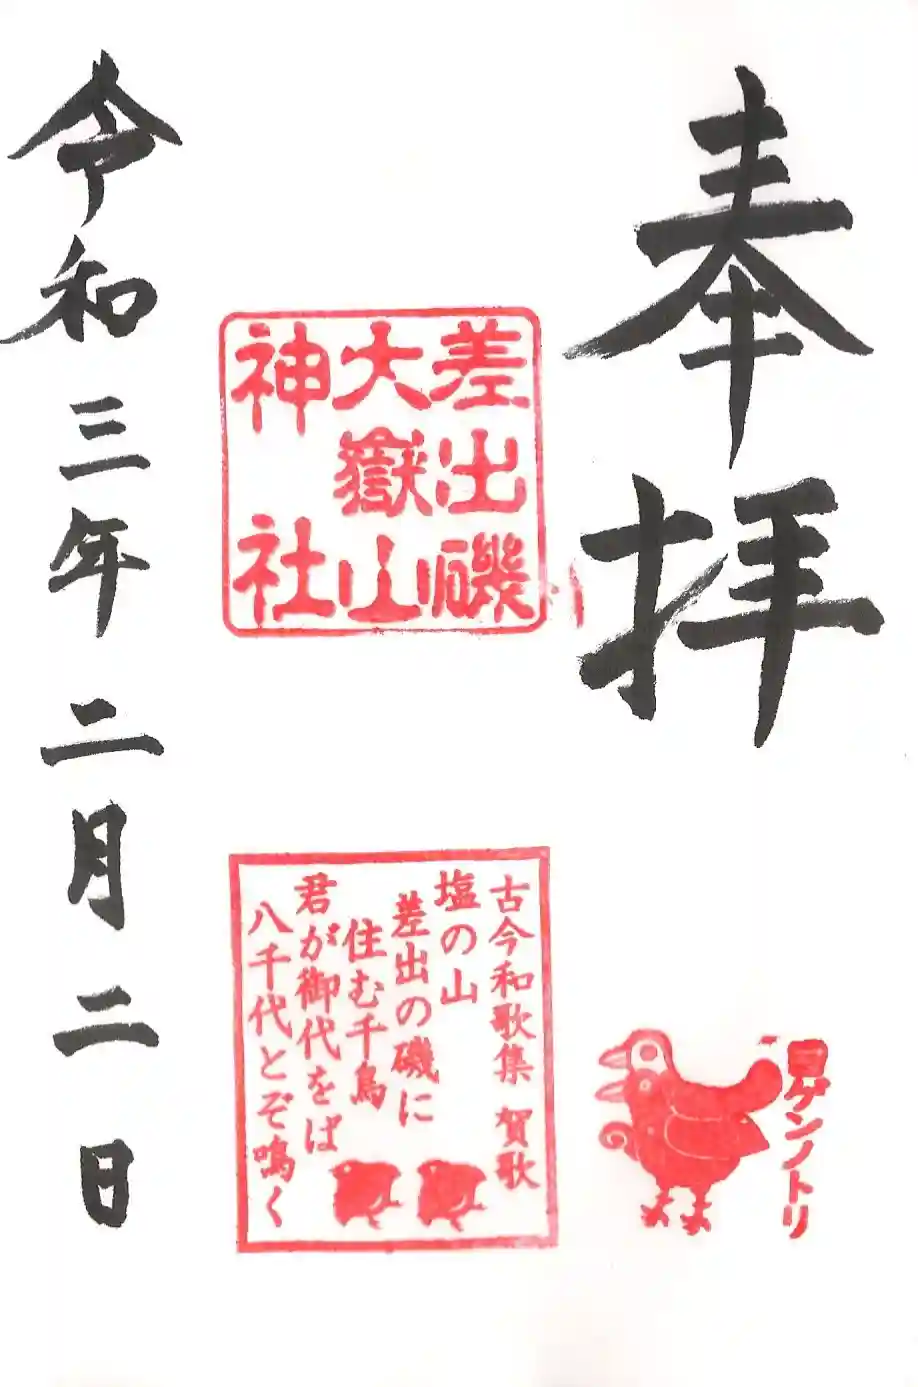 奉拝
ヨゲンノトリ
差出磯
大嶽山
神社
古今和歌集 賀歌
塩の山
差出の磯に
住む千鳥
君が御代をば
八千代とぞ鳴く
令和三年二月二日